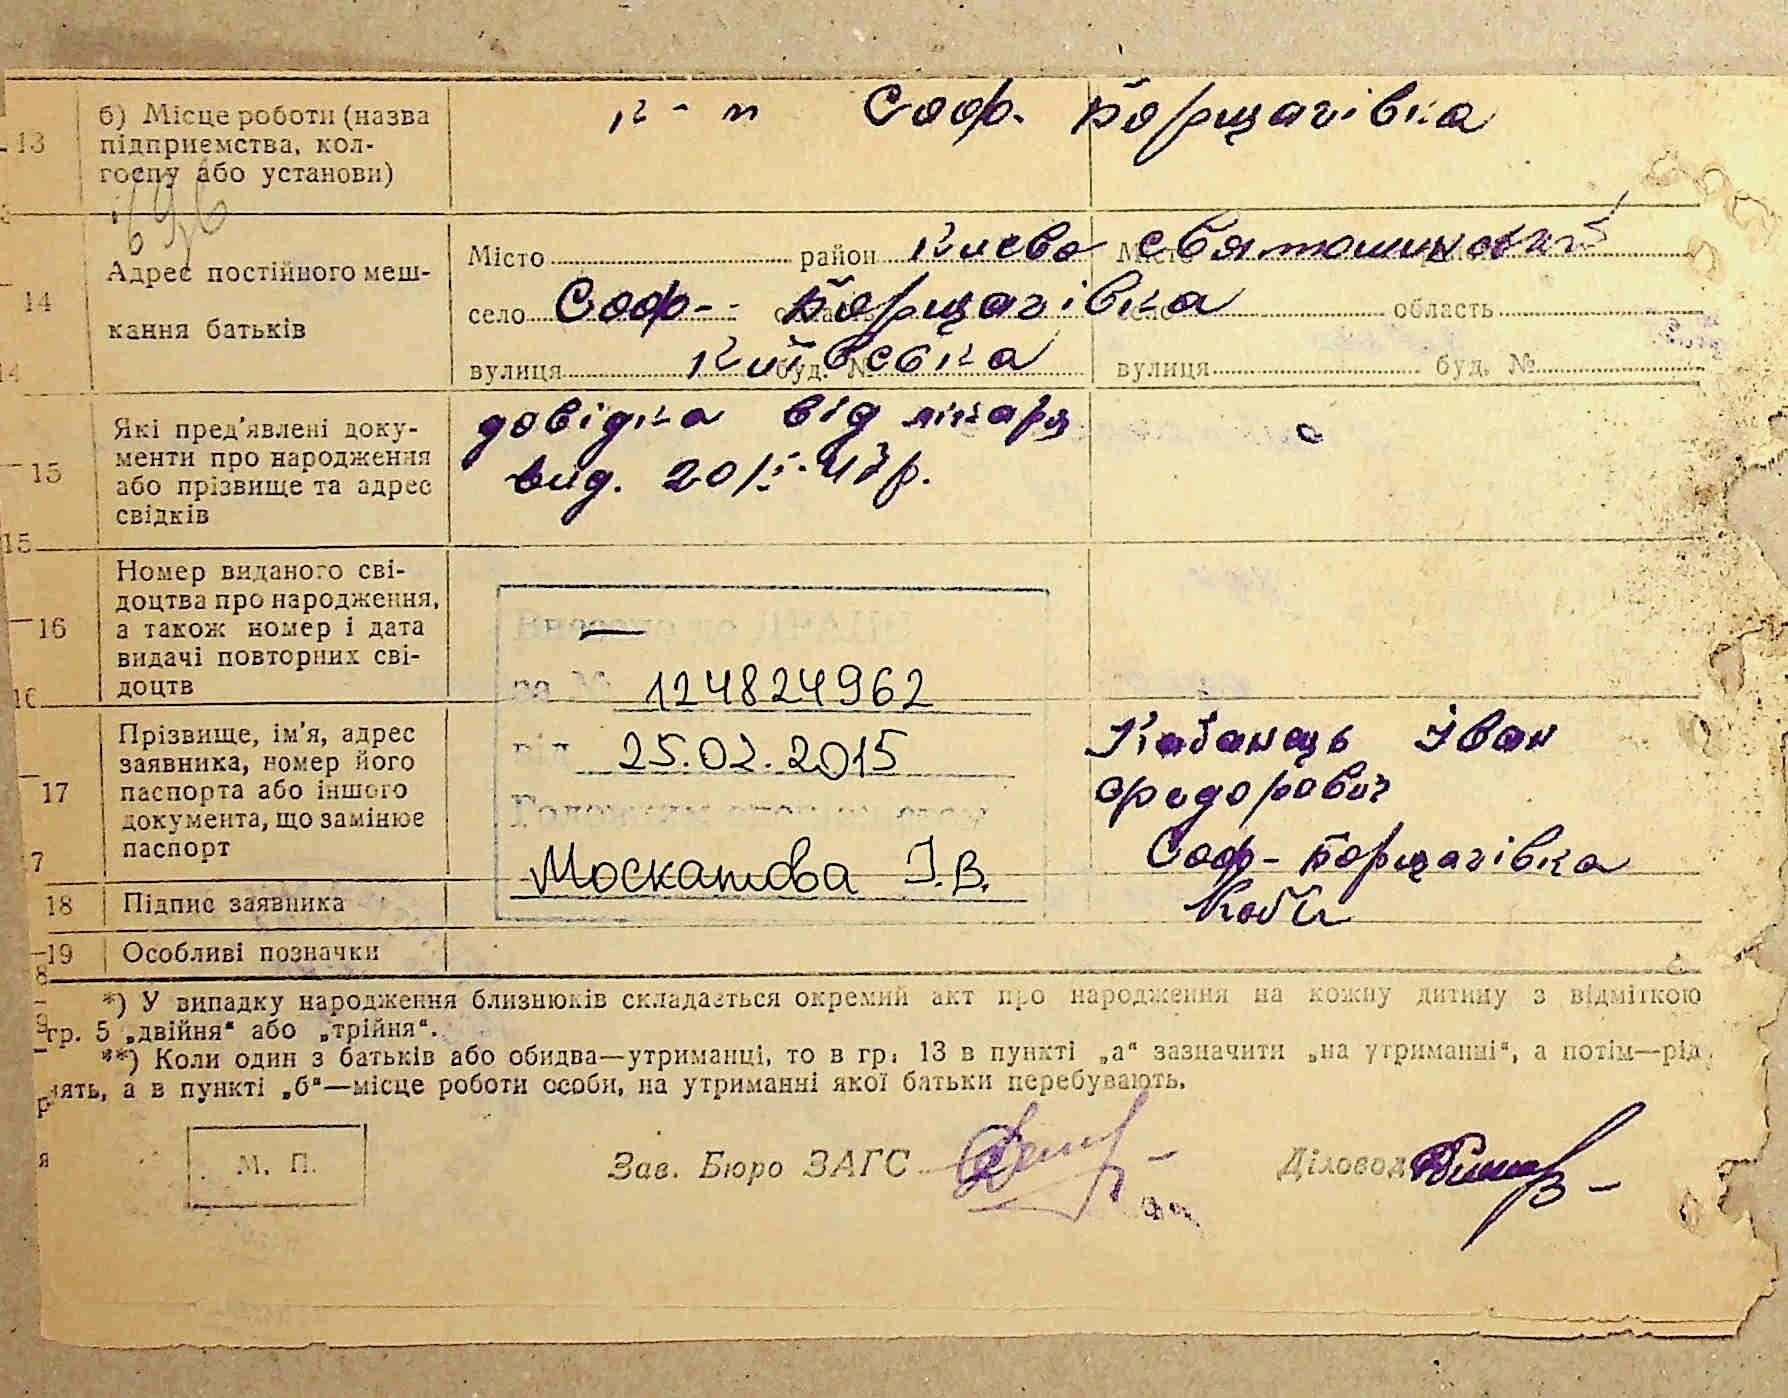 13 б) Місце роботи (назва підприємства, колгоспу або установи)
к-п Соф. Борщагівка
696
14 Адрес постійного мешкання батьків
Місто район Києво Святошинський
село Соф- Борщагівка область
вулиця Київська буд. №
вулиця буд. №
15 Які пред'явлені документи про народження або прізвище та адрес свідків
довідка від лікаря
вид. 20/ 47р.
16 Номер виданого свідоцтва про народження, а також номер і дата видачі повторних свідоцтв
—
за № 124824962
від 25.02.2015
Москатова І.В.
17 Прізвище, ім'я, адрес заявника, номер його паспорта або іншого документа, що замінює паспорт
Кабанець Іван
Федорович
Соф- Борщагівка
18 Підпис заявника
19 Особливі позначки
*) У випадку народження близнюків складається окремий акт про народження на кожну дитину з відміткою
гр. 5 „двійня“ або „трійня“.
**) Коли один з батьків або обидва—утриманці, то в гр. 13 в пункті „а“ зазначити „на утриманні“, а потім—рід
нять, а в пункті „б“—місце роботи особи, на утриманні якої батьки перебувають.
М. П.
Зав. Бюро ЗАГС
Діловод